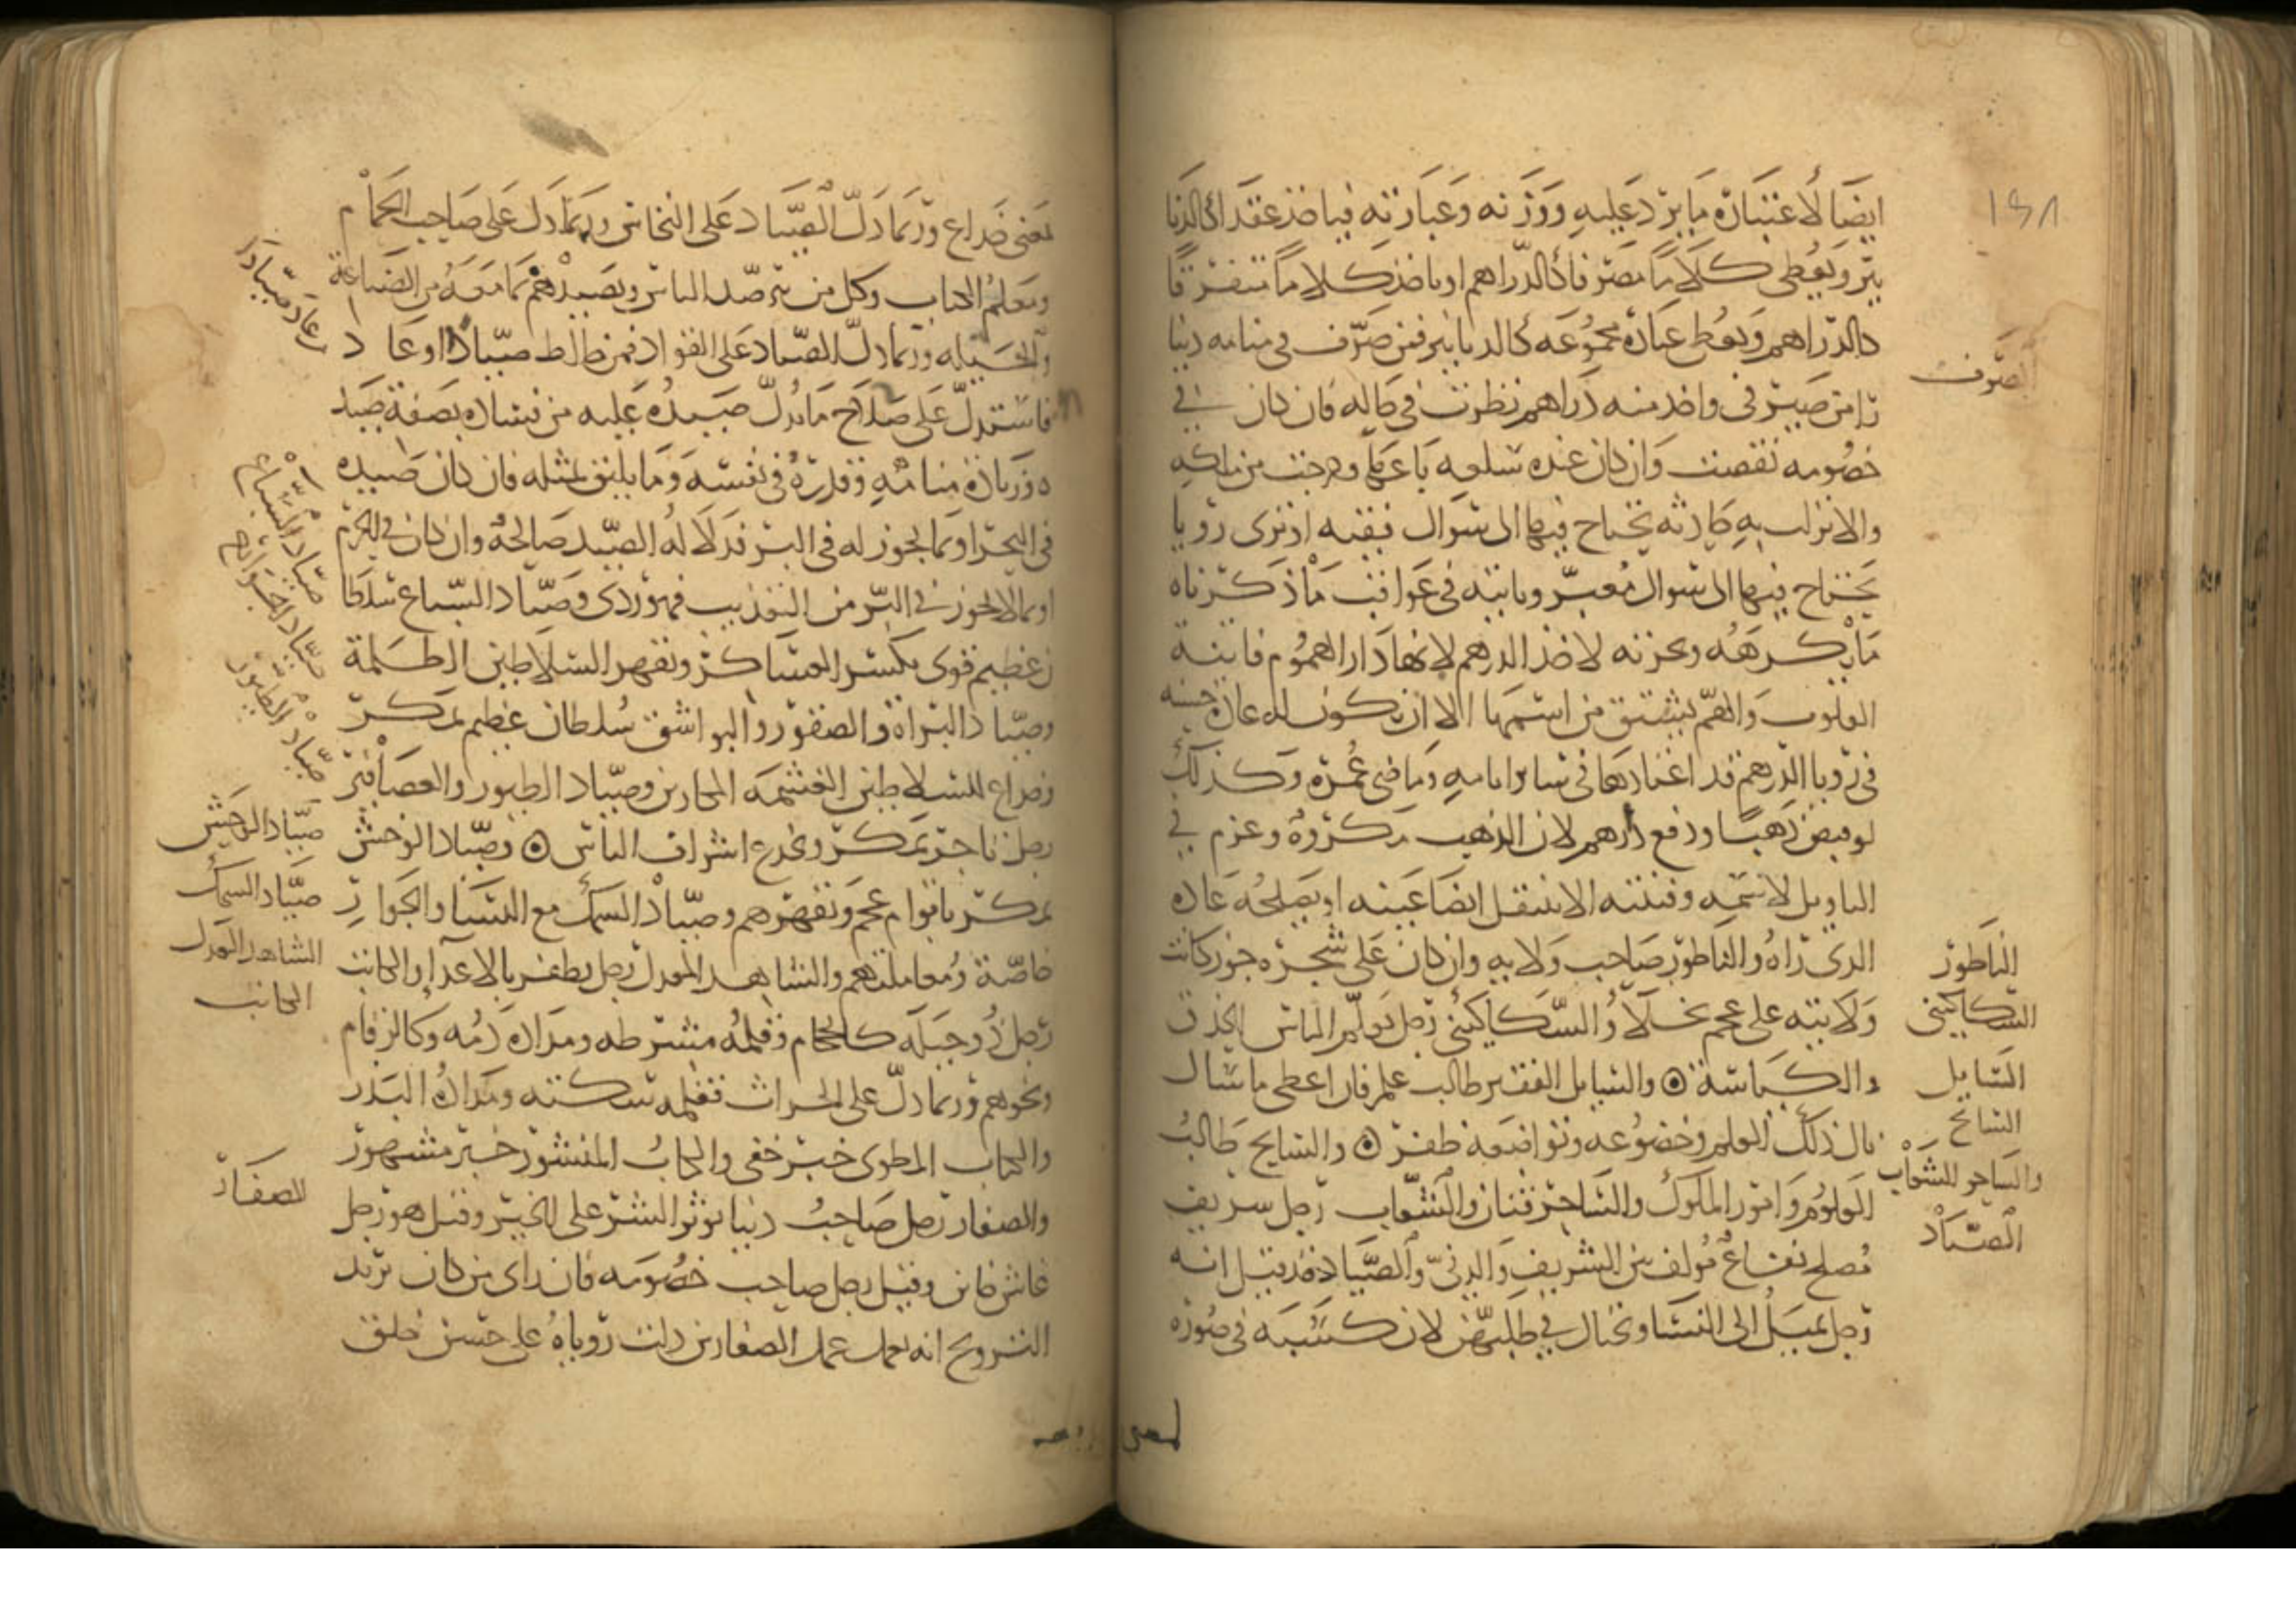 ١٤٨
ايضا لاعتباره ما يرد عليه ووزنه وعبارته فياخذ عقدا كالدنا
نير ويعطى كلاما مصرفا كالدراهم او ياخذ كلاما متفرقا
كالدراهم ويعطى عبارة مجموعه كالدنانير فمن صرف في منامه دينا
را من صيرفى واخذ منه دراهم نظرت في حاله فان كان في
خصومه نقصت وان كان عنده سلعه باعها وخرجت من ملكه
والا نزلت به حادثه يحتاج فيها الى سوال فقيه او يرى رويا
يحتاج فيها الى سوال معبر وياتيه في عواقب ما ذكرناه
ما يكرهه ويحزنه لاخذ الدرهم لانها دار الهموم فاتنة
القلوب والهم يشتق من اسمها الا ان يكون له عادة حسنه
في رويا الدرهم قد اعتادها في ساير ايامه وماضى عمره وكذلك
لو قبض ذهبا ودفع دراهم لان الذهب مكروه وغرم في
التاويل لاسمه وفتنته الا ينتقل ايضا عينه او يصلحه عادة
الذى راه والناطور صاحب ولايه وان كان على شجرة جوز كانت
ولايته على عجم بخلا والسكاكينى رجل يعلم الناس الحذق
والكياسة والسايل الفقير طالب علم فان اعطى ما سال
نال ذلك العلم وخضوعه وتواضعه ظفر والسايح طالب
العلوم وامور الملوك والساحر فتان والشعاب رجل شريف
مصلح نفاع مولف بين الشريف والدنى والصياد قد قيل انه
رجل يميل الى النسا ويحتال في طلبهن لان كسبه في صورة
الصرف
الناطور
السكاكينى
السايل
السائح
والساحر الشعاب
الصياد
لمعنى
معنى خداع وربما دل الصياد على النخاس وربما دل على صاحب الحمام
ومعلم الكتاب وكل من يترصد الناس ويصيدهم بما معه من الصناعة
والحيله وربما دل الصياد على القواد فمن خالط صيادا او عاد
فاستدل على صلاح ما يدل صيده عليه من فساده بصفة صيد
ه وزيادة منامه وقدره في نفسه وما يليق بمثله فان كان صيده
في البحر او بما يجوز له في البر فدلاله الصيد صالحة وان كان في الحرم
او بما لا يجوز في البر من التعذيب فهو ردى وصياد السباع سلطا
ن عظيم قوى يكسر العساكر ويقهر السلاطين الظلمة
وصياد البزاة والصقور والبواشق سلطان عظيم يمكر
وخداع للسلاطين الغشمه المحاربين وصياد الطيور والعصافير
رجل تاجر يمكر ويخدع اشراف الناس وصياد الوحش
يمكر باقوام عجم ويقهرهم وصياد السمك مع النسا والجوار
خاصة ومعاملتهم والشاهد المعدل رجل يظفر بالاعدا والكاتب
رجل ذو حيلة كالحجام وقلمه مشرطه ومداده دمه وكالرقام
ونحوهم وربما دل على الحراث فقلمه سكته ومداده البذر
والكتاب المطوى خبر خفى والكتاب المنشور خبر مشهور
والصفار رجل صاحب دنيا يوثر الشر على الخير وقيل هو رجل
غاش خاين وقيل رجل صاحب خصومه فان راى من كان يريد
التزويج انه يعمل عمل الصفارين دلت روياه على حسن خلق
عاد صيادا
صياد السباع
صياد الطيور
صياد الوحش
صياد السمك
الشاهد العدل
الكاتب
الصفار